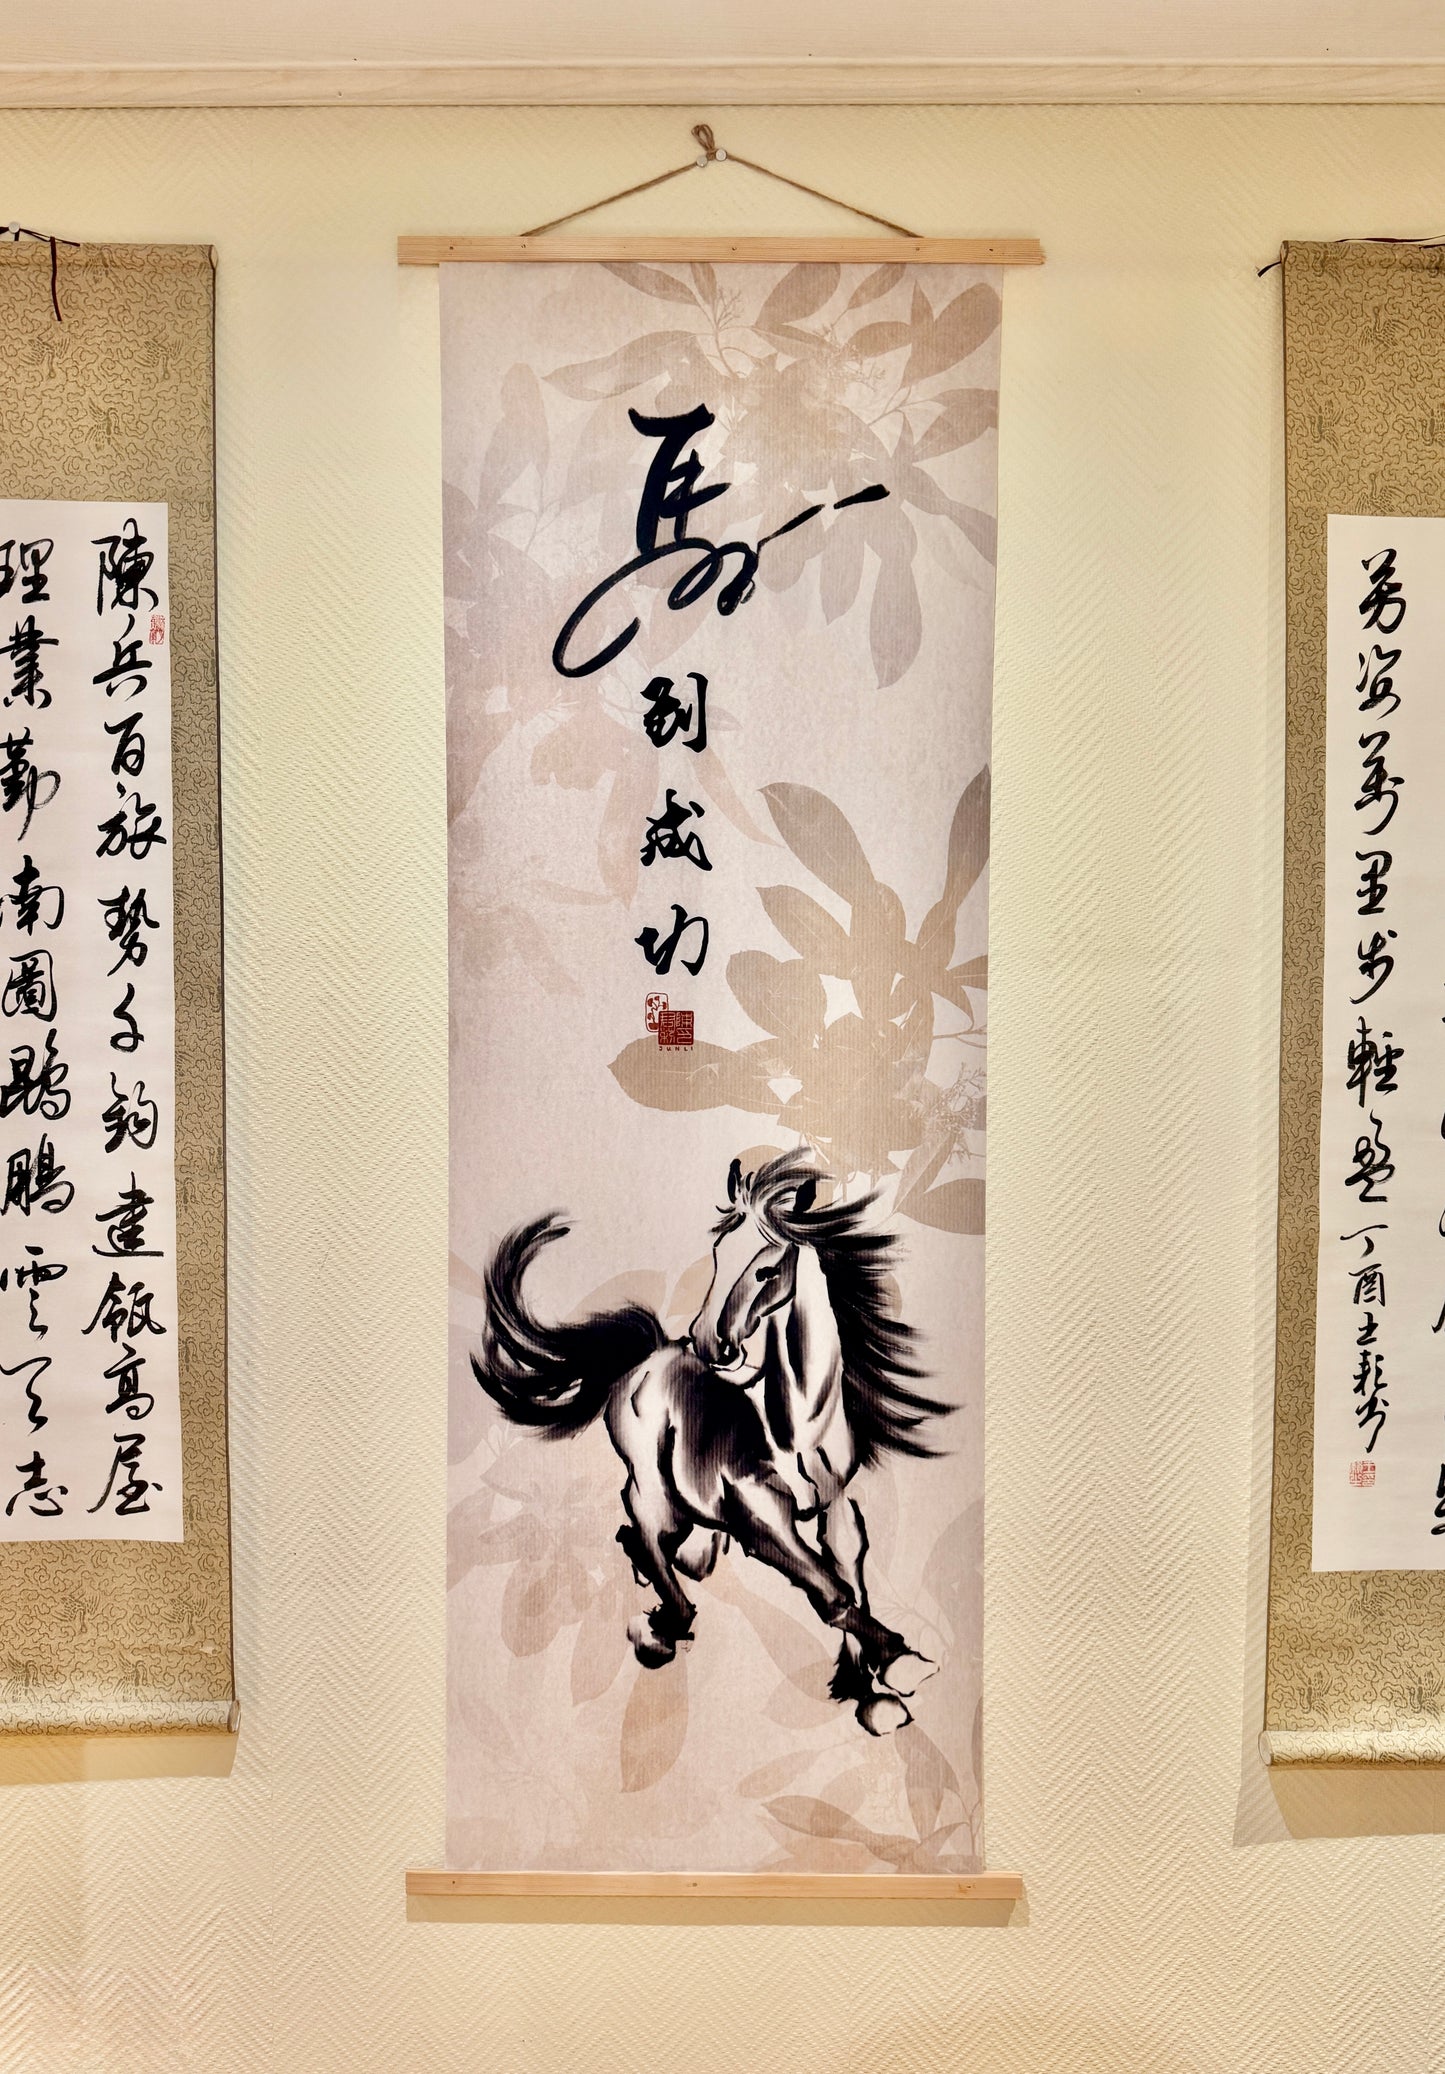 陳兵百旅勢千鈞建瓴高屋
理業勤南圖鵾鵬雲天志
馬到成功
JUNLI
芳姿萬里步輕盈
丁酉